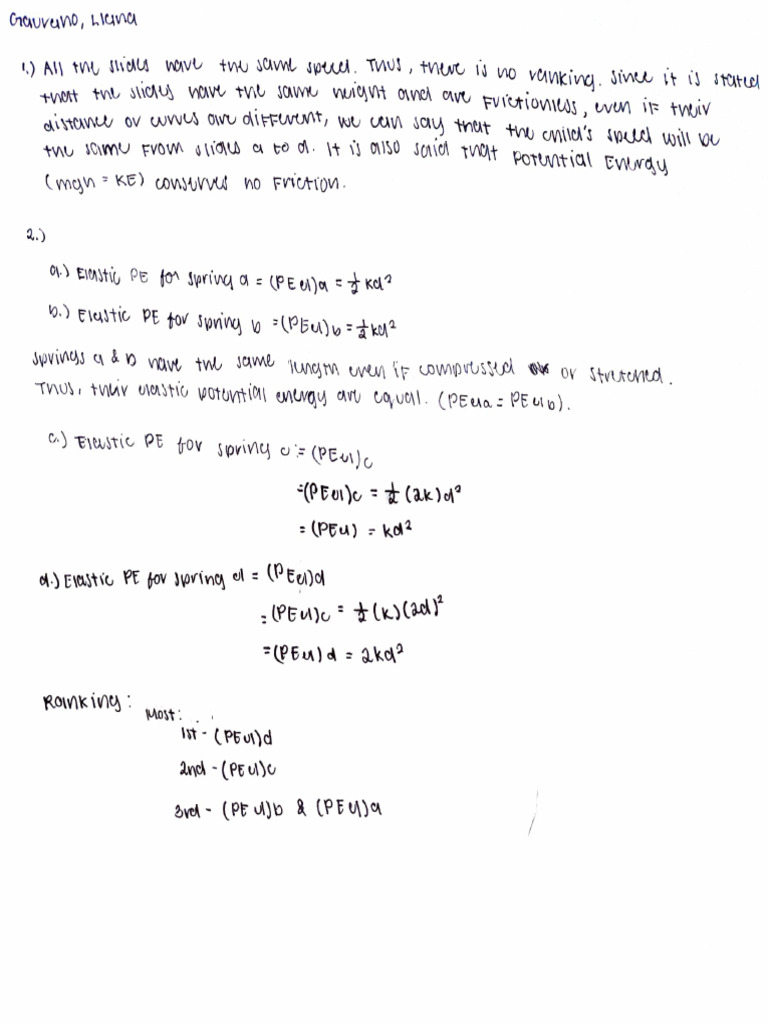 Gaurano, Liana
1.) All the slides have the same speed. Thus, there is no ranking. Since it is stated
that the slides have the same height and are frictionless, even if their
distance or curves are different, we can say that the child's speed will be
the same from slides a to d. It is also said that potential Energy
(mgh = KE) conserves no friction.
2.)
a.) Elastic PE for spring a = (PE el)a = ½ kd²
b.) Elastic PE for spring b = (PE el)b = ½ kd²
springs a & b have the same length even if compressed or stretched.
Thus, their elastic potential energy are equal. (PE el a = PE el b).
c.) Elastic PE for spring c = (PE el)c
= (PE el)c = ½ (2k)d²
= (PE el) = kd²
d.) Elastic PE for spring d = (PE el)d
= (PE el)c = ½ (k)(2d)²
= (PE el)d = 2kd²
Ranking:
Most:
1st - (PE el)d
2nd - (PE el)c
3rd - (PE el)b & (PE el)a